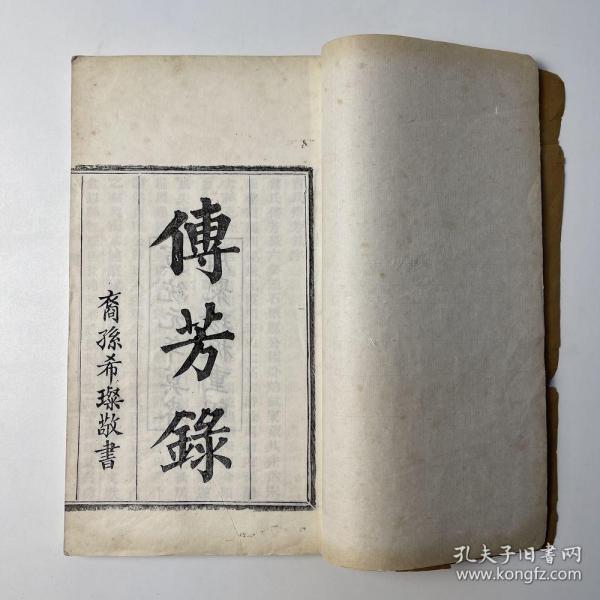 傳芳錄
裔孫希璨敬書
孔夫子旧书网
www.kongfz.com